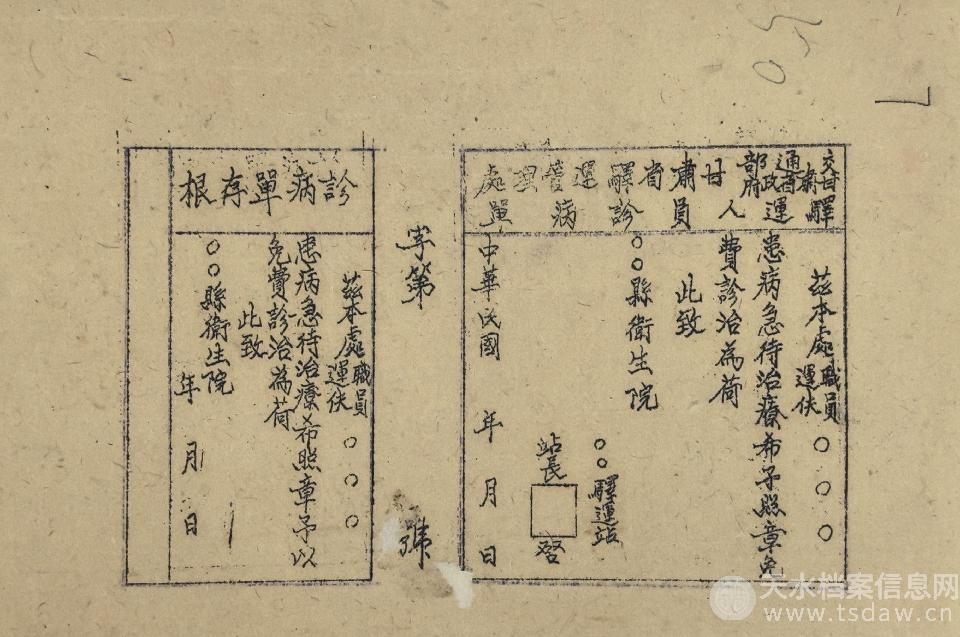 交通部
甘肅省政府
甘肅省驛運管理處
驛運人員診病單
茲本處職員
運伕○○○
患病急待治療希予照章免
費診治為荷
此致
○○縣衛生院
○○驛運站
站長 啓
中華民國 年 月 日
字第 號
診病單存根
茲本處職員
運伕○○○
患病急待治療希照章予以
免費診治為荷
此致
○○縣衛生院
年 月 日
天水档案信息网
www.tsdaw.cn